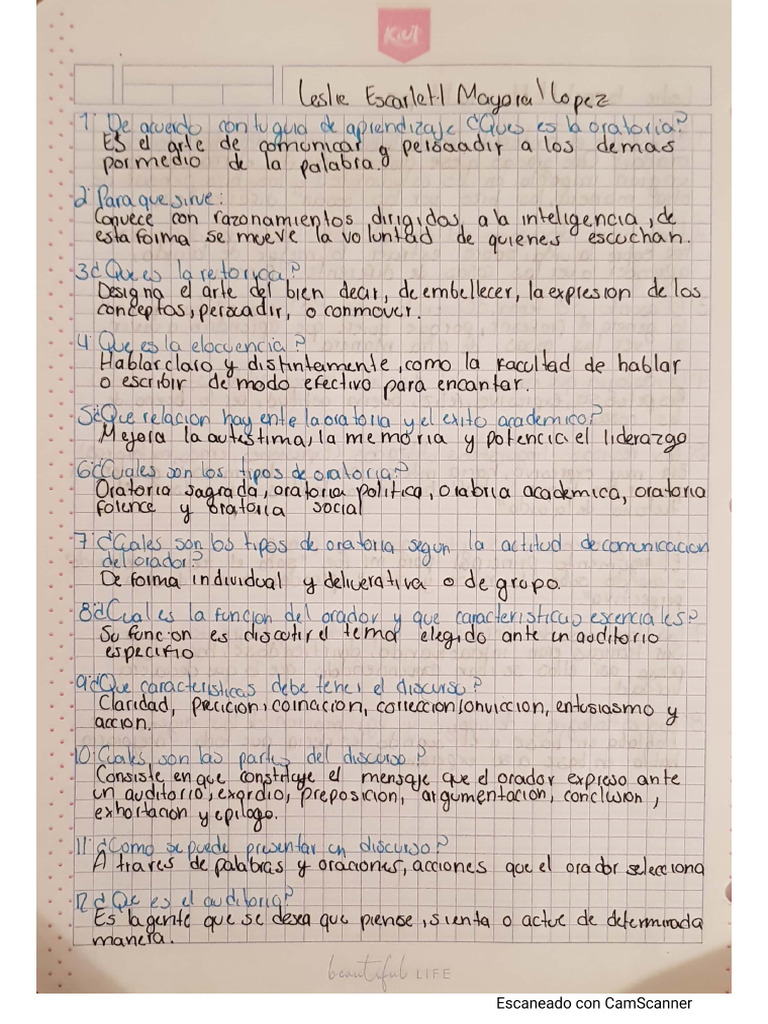 KIUT
Leslie Escarlett Mayoral Lopez
1 De acuerdo con tu guia de aprendizaje ¿Ques es la oratoria?
ES el arte de comunicar y persaadir a los demas
por medio de la palabra.
2 Para que sirve:
Convece con razonamientos dirigidos, a la inteligencia, de
esta forma se mueve la voluntad de quienes escuchan.
3¿Que es la retorica?
Designa el arte del bien decir, de embellecer, la expresion de los
conceptos, persuadir, o conmover.
4 Que es la elocuencia?
Hablar claro y distintamente, como la facultad de hablar
o escribir de modo efectivo para encantar.
5¿Que relacion hay ente la oratoria y el exito academico?
Mejora la autestima, la memoria y potencia el liderazgo
6¿Cuales son los tipos de oratoria?
Oratoria sagrada, oratoria politica, orabria academica, oratoria
forence y oratoria social
7¿Cuales son los tipos de oratoria segun la actitud de comunicacion
del orador?
De forma individual y deliverativa o de grupo.
8¿Cual es la funcion del orador y que caracteristicas escenciales?
Su funcion es discutir el tema elegido ante un auditorio
especifio
9¿Que caracteristicas debe tener el discurso?
Claridad, precicion, coinacion, correccion, conviccion, entusiasmo y
accion.
10 Cuales son las partes del discurso?
Consiste en que constituye el mensaje que el orador expreso ante
un auditorio, exordio, preposicion, argumentacion, conclusion,
exhortacion y epilogo.
11 ¿Como se puede presentar un discurso?
A traves de palabras y oraciones, acciones que el orador selecciona
12 ¿Que es el auditorio?
Es la gente que se desea que piense, sienta o actue de determinada
manera.
beautiful LIFE
Escaneado con CamScanner